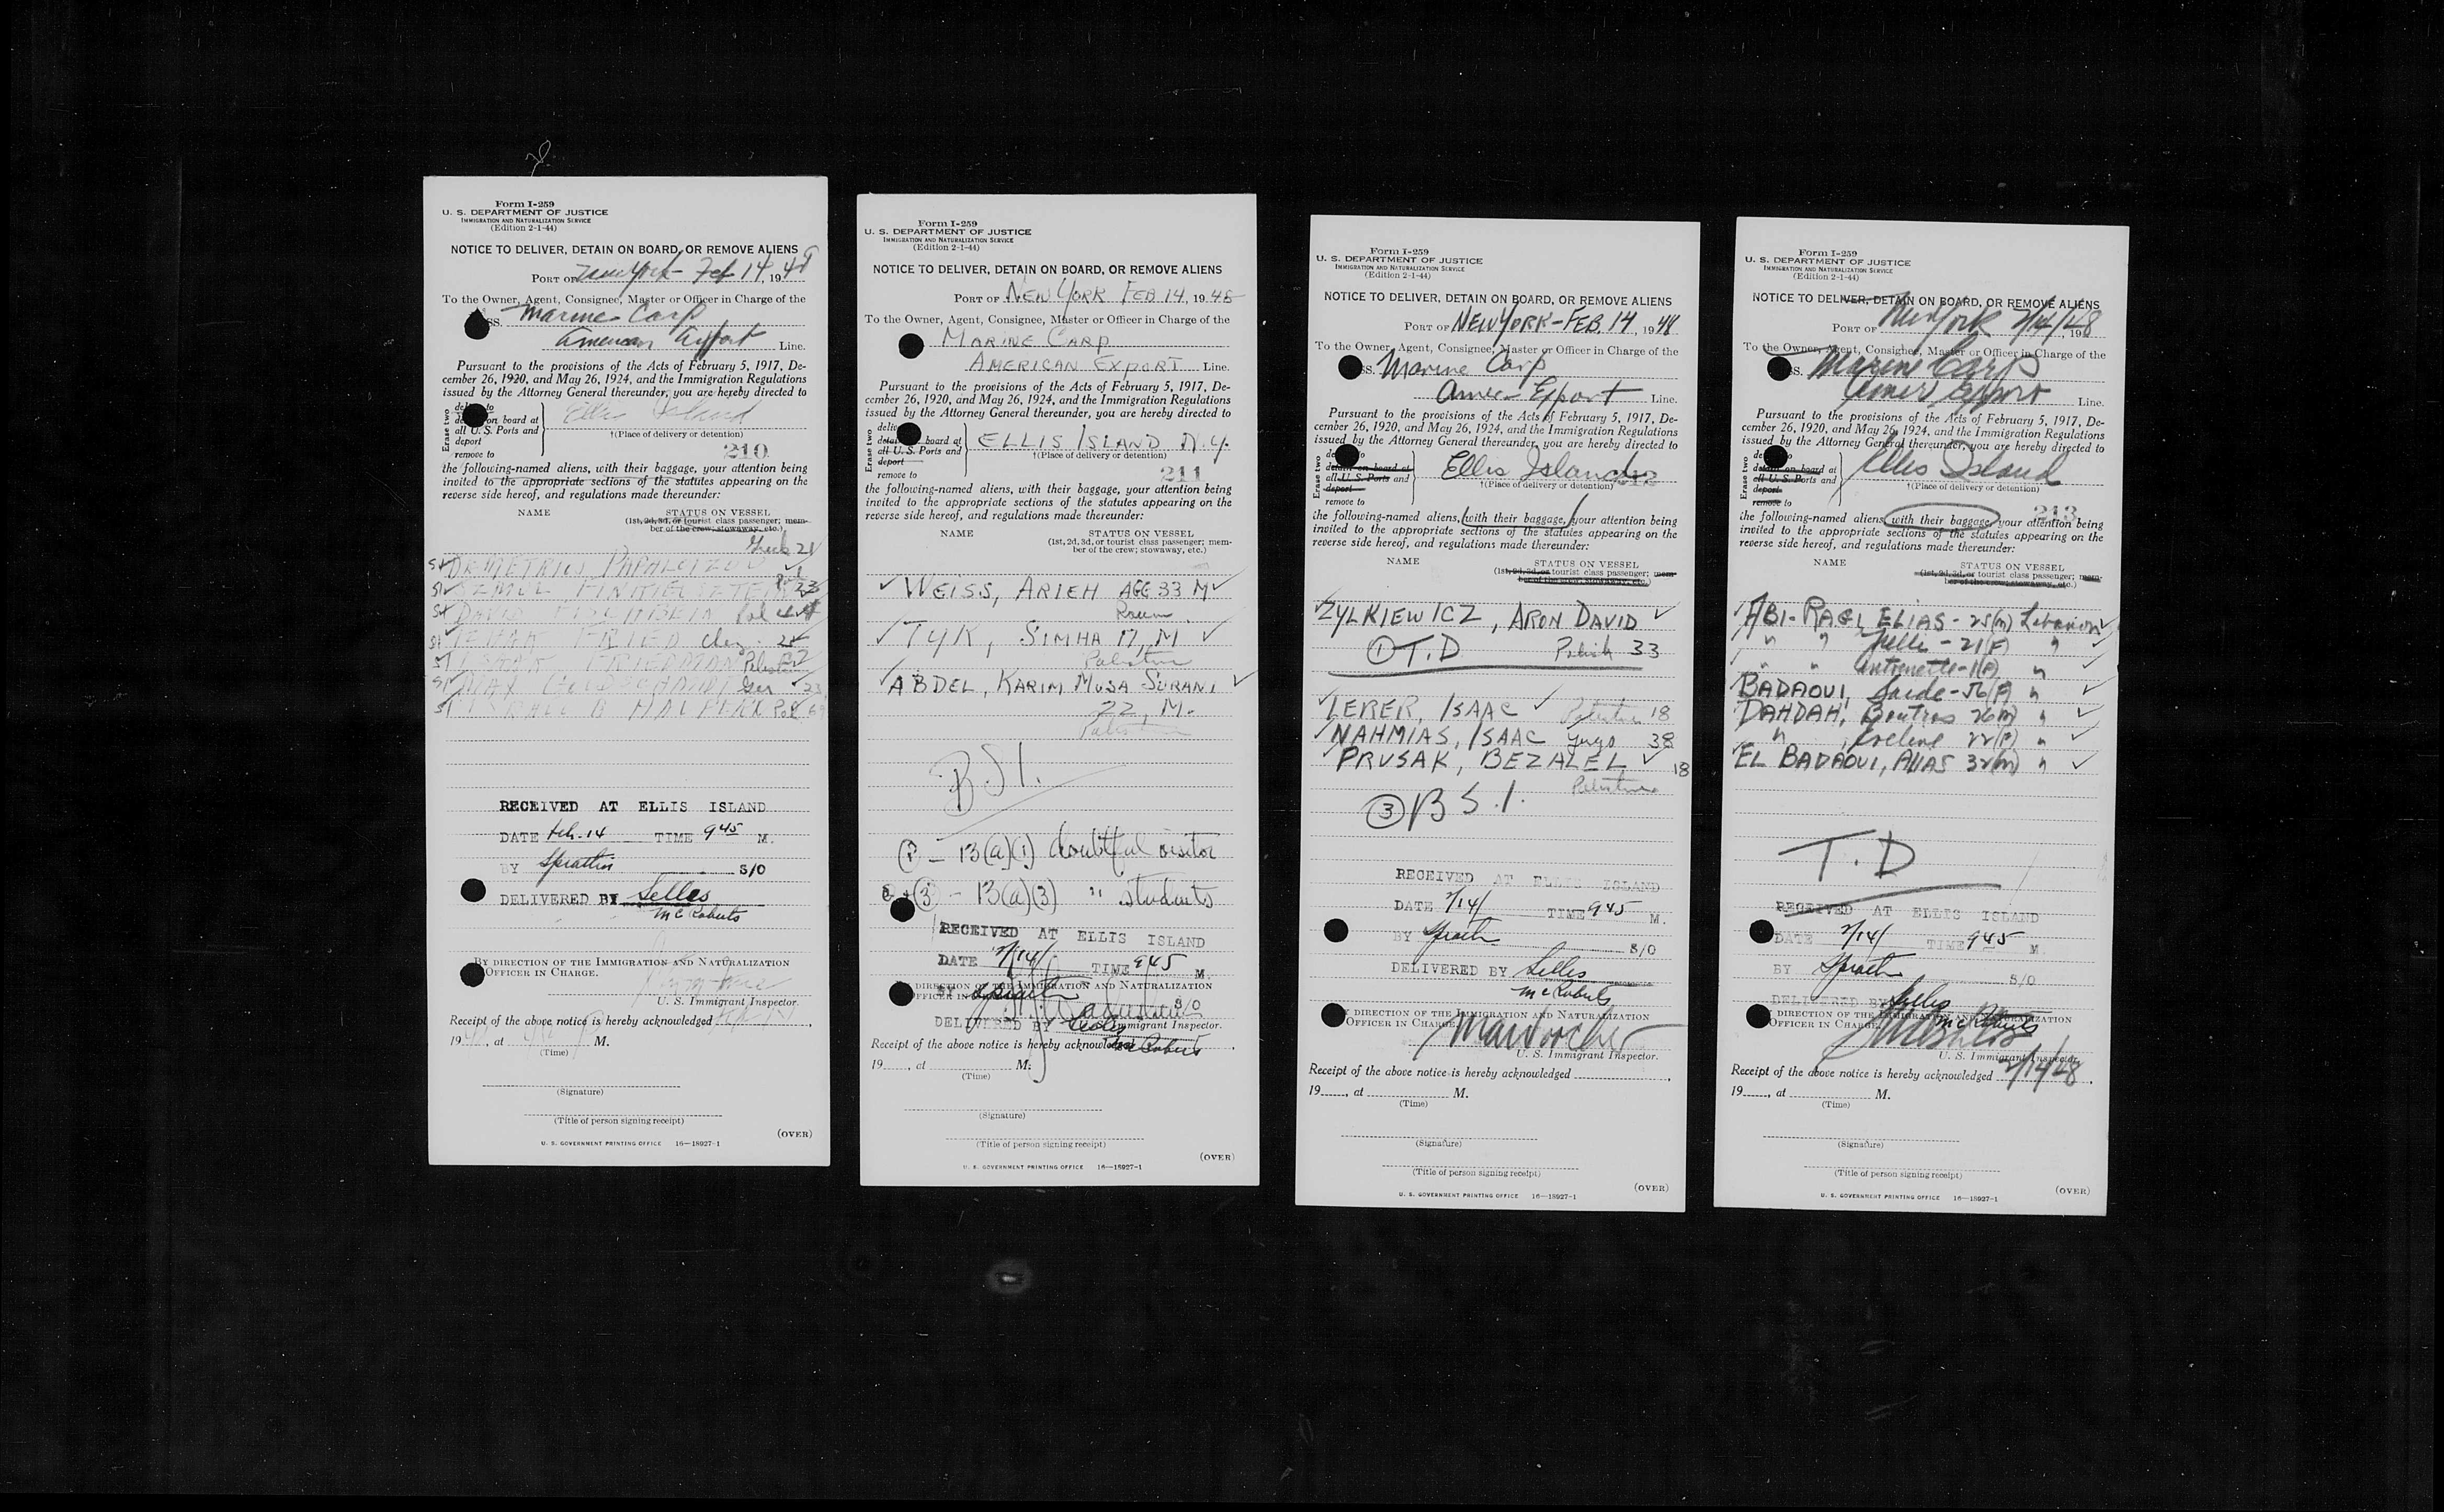 Form I-259
U. S. DEPARTMENT OF JUSTICE
IMMIGRATION AND NATURALIZATION SERVICE
(Edition 2-1-44)
NOTICE TO DELIVER, DETAIN ON BOARD, OR REMOVE ALIENS
PORT OF New York - Feb 14, 1948
To the Owner, Agent, Consignee, Master or Officer in Charge of the
SS. Marine Carp
American Export Line.
Pursuant to the provisions of the Acts of February 5, 1917, De-
cember 26, 1920, and May 26, 1924, and the Immigration Regulations
issued by the Attorney General thereunder, you are hereby directed to
Erase two
on board at
all U. S. Ports and
deport
remove to
Ellis Island
†(Place of delivery or detention)
210
the following-named aliens, with their baggage, your attention being
invited to the appropriate sections of the statutes appearing on the
reverse side hereof, and regulations made thereunder:
NAME STATUS ON VESSEL
(1st, 2d, 3d, or tourist class passenger; mem-
ber of the crew; stowaway, etc.)
Greek 21
DEMETRIUS
DAVID FISCHBEIN Pol
FRIED
FRIEDMAN
MAX Ger 23
HALPERN Pol
RECEIVED AT ELLIS ISLAND
DATE Feb. 14 TIME 9 45 M.
BY S/O
DELIVERED BY Selles
McRoberts
BY DIRECTION OF THE IMMIGRATION AND NATURALIZATION
OFFICER IN CHARGE.
U. S. Immigrant Inspector.
Receipt of the above notice is hereby acknowledged
19, at M.
(Time)
(Signature)
(Title of person signing receipt)
U. S. GOVERNMENT PRINTING OFFICE 16—18927-1
(OVER)
Form I-259
U. S. DEPARTMENT OF JUSTICE
IMMIGRATION AND NATURALIZATION SERVICE
(Edition 2-1-44)
NOTICE TO DELIVER, DETAIN ON BOARD, OR REMOVE ALIENS
PORT OF NEW YORK FEB. 14, 1948
To the Owner, Agent, Consignee, Master or Officer in Charge of the
MARINE CARP
AMERICAN EXPORT Line.
Pursuant to the provisions of the Acts of February 5, 1917, De-
cember 26, 1920, and May 26, 1924, and the Immigration Regulations
issued by the Attorney General thereunder, you are hereby directed to
Erase two
board at
all U. S. Ports and
deport
remove to
ELLIS ISLAND N.Y.
†(Place of delivery or detention)
211
the following-named aliens, with their baggage, your attention being
invited to the appropriate sections of the statutes appearing on the
reverse side hereof, and regulations made thereunder:
NAME STATUS ON VESSEL
(1st, 2d, 3d, or tourist class passenger; mem-
ber of the crew; stowaway, etc.)
✓ WEISS, ARIEH AGE 33 M ✓
✓ TYK, SIMHA 17, M ✓
Palestine
✓ ABDEL, KARIM MUSA SURANI ✓
22, M.
Palestine
B.S.I.
① - 13(a)(1) doubtful visitor
③ - 13(a)(3) " students
RECEIVED AT ELLIS ISLAND
DATE 2/14/ TIME 9 45 M.
BY S/O
DIRECTION OF THE IMMIGRATION AND NATURALIZATION
OFFICER IN
DELIVERED BY Selles Immigrant Inspector.
Receipt of the above notice is hereby acknowledged McRoberts
19, at M.
(Time)
(Signature)
(Title of person signing receipt)
U. S. GOVERNMENT PRINTING OFFICE 16—18927-1
(OVER)
Form I-259
U. S. DEPARTMENT OF JUSTICE
IMMIGRATION AND NATURALIZATION SERVICE
(Edition 2-1-44)
NOTICE TO DELIVER, DETAIN ON BOARD, OR REMOVE ALIENS
PORT OF NEW YORK - FEB. 14, 1948
To the Owner, Agent, Consignee, Master or Officer in Charge of the
SS. Marine Carp
Amer Export Line.
Pursuant to the provisions of the Acts of February 5, 1917, De-
cember 26, 1920, and May 26, 1924, and the Immigration Regulations
issued by the Attorney General thereunder, you are hereby directed to
Erase two
detain on board at
all U. S. Ports and
deport
remove to
Ellis Island
†(Place of delivery or detention)
212
the following-named aliens, with their baggage, your attention being
invited to the appropriate sections of the statutes appearing on the
reverse side hereof, and regulations made thereunder:
NAME STATUS ON VESSEL
(1st, 2d, 3d, or tourist class passenger; mem-
ber of the crew; stowaway, etc.)
✓ ZYLKIEWICZ, ARON DAVID ✓
① T.D Polish 33
✓ LERER, ISAAC ✓ Palestine 18
✓ NAHMIAS, ISAAC Yugo 38
✓ PRUSAK, BEZALEL ✓ 18
Palestine
③ B S.I.
RECEIVED AT ELLIS ISLAND
DATE 2/14/ TIME 9 45 M.
BY S/O
DELIVERED BY Selles
McRoberts
DIRECTION OF THE IMMIGRATION AND NATURALIZATION
OFFICER IN CHARGE
U. S. Immigrant Inspector.
Receipt of the above notice is hereby acknowledged
19, at M.
(Time)
(Signature)
(Title of person signing receipt)
U. S. GOVERNMENT PRINTING OFFICE 16—18927-1
(OVER)
Form I-259
U. S. DEPARTMENT OF JUSTICE
IMMIGRATION AND NATURALIZATION SERVICE
(Edition 2-1-44)
NOTICE TO DELIVER, DETAIN ON BOARD, OR REMOVE ALIENS
PORT OF New York 2/14/48, 19
To the Owner, Agent, Consignee, Master or Officer in Charge of the
SS. Marine Carp
Amer. Export Line.
Pursuant to the provisions of the Acts of February 5, 1917, De-
cember 26, 1920, and May 26, 1924, and the Immigration Regulations
issued by the Attorney General thereunder, you are hereby directed to
Erase two
detain on board at
all U. S. Ports and
deport
remove to
Ellis Island
†(Place of delivery or detention)
213
the following-named aliens, with their baggage, your attention being
invited to the appropriate sections of the statutes appearing on the
reverse side hereof, and regulations made thereunder:
NAME STATUS ON VESSEL
(1st, 2d, 3d, or tourist class passenger; mem-
ber of the crew; stowaway, etc.)
ABI-RAGI, ELIAS - 25(M) Lebanon ✓
" " - 21(F) " ✓
" " Antoinette - 1(F) " ✓
BADAOUI, Saide - 56(F) " ✓
DAHDAH, Boutros 26(M) " ✓
" , Eveline 22(F) " ✓
EL BADAOUI, 32(M) " ✓
T.D
RECEIVED AT ELLIS ISLAND
DATE 2/14/ TIME 9 45 M.
BY S/O
DELIVERED BY Selles
McRoberts
DIRECTION OF THE IMMIGRATION AND NATURALIZATION
OFFICER IN CHARGE
U. S. Immigrant Inspector.
Receipt of the above notice is hereby acknowledged 2/14/48.
19, at M.
(Time)
(Signature)
(Title of person signing receipt)
U. S. GOVERNMENT PRINTING OFFICE 16—18927-1
(OVER)